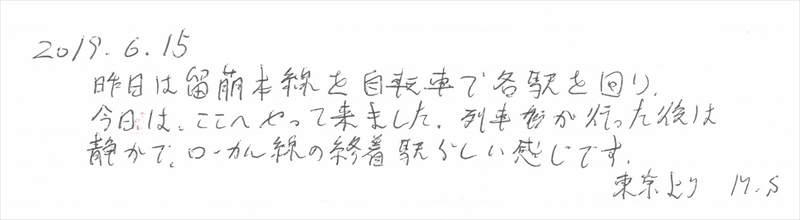 2019.6.15
昨日は留萠本線を自転車で各駅を回り、
今日は、ここへやって来ました。列車が行った後は
静かで、ローカル線の終着駅らしい感じです。
東京より M.S